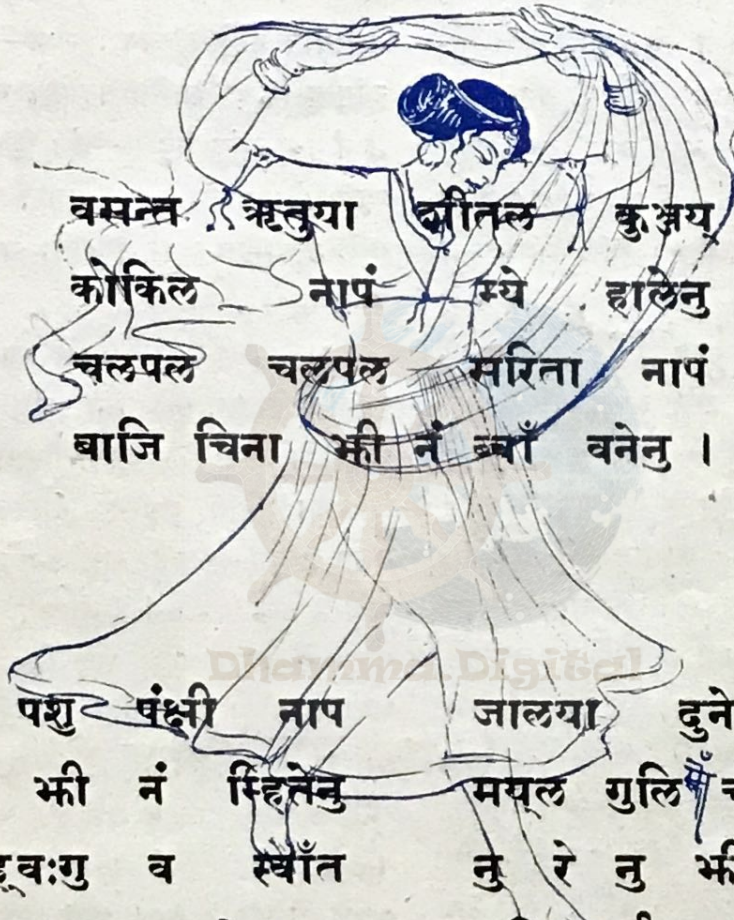 वसन्त ऋतुया शीतल कुञ्जय्
कोकिल नापं म्ये हालेनु
चलपल चलपल सरिता नापं
बाजि चिना झी नं ब्वाँ वनेनु ।
Dhamma.Digital
पशु पंक्षी नाप जालया दुने
झी नं म्हितेनु मय्ल गुलि
व स्वाँत नु रे नु झी